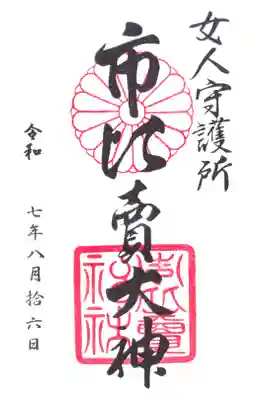 女人守護所
市比賣大神
令和
七年八月拾六日
市比賣
神社